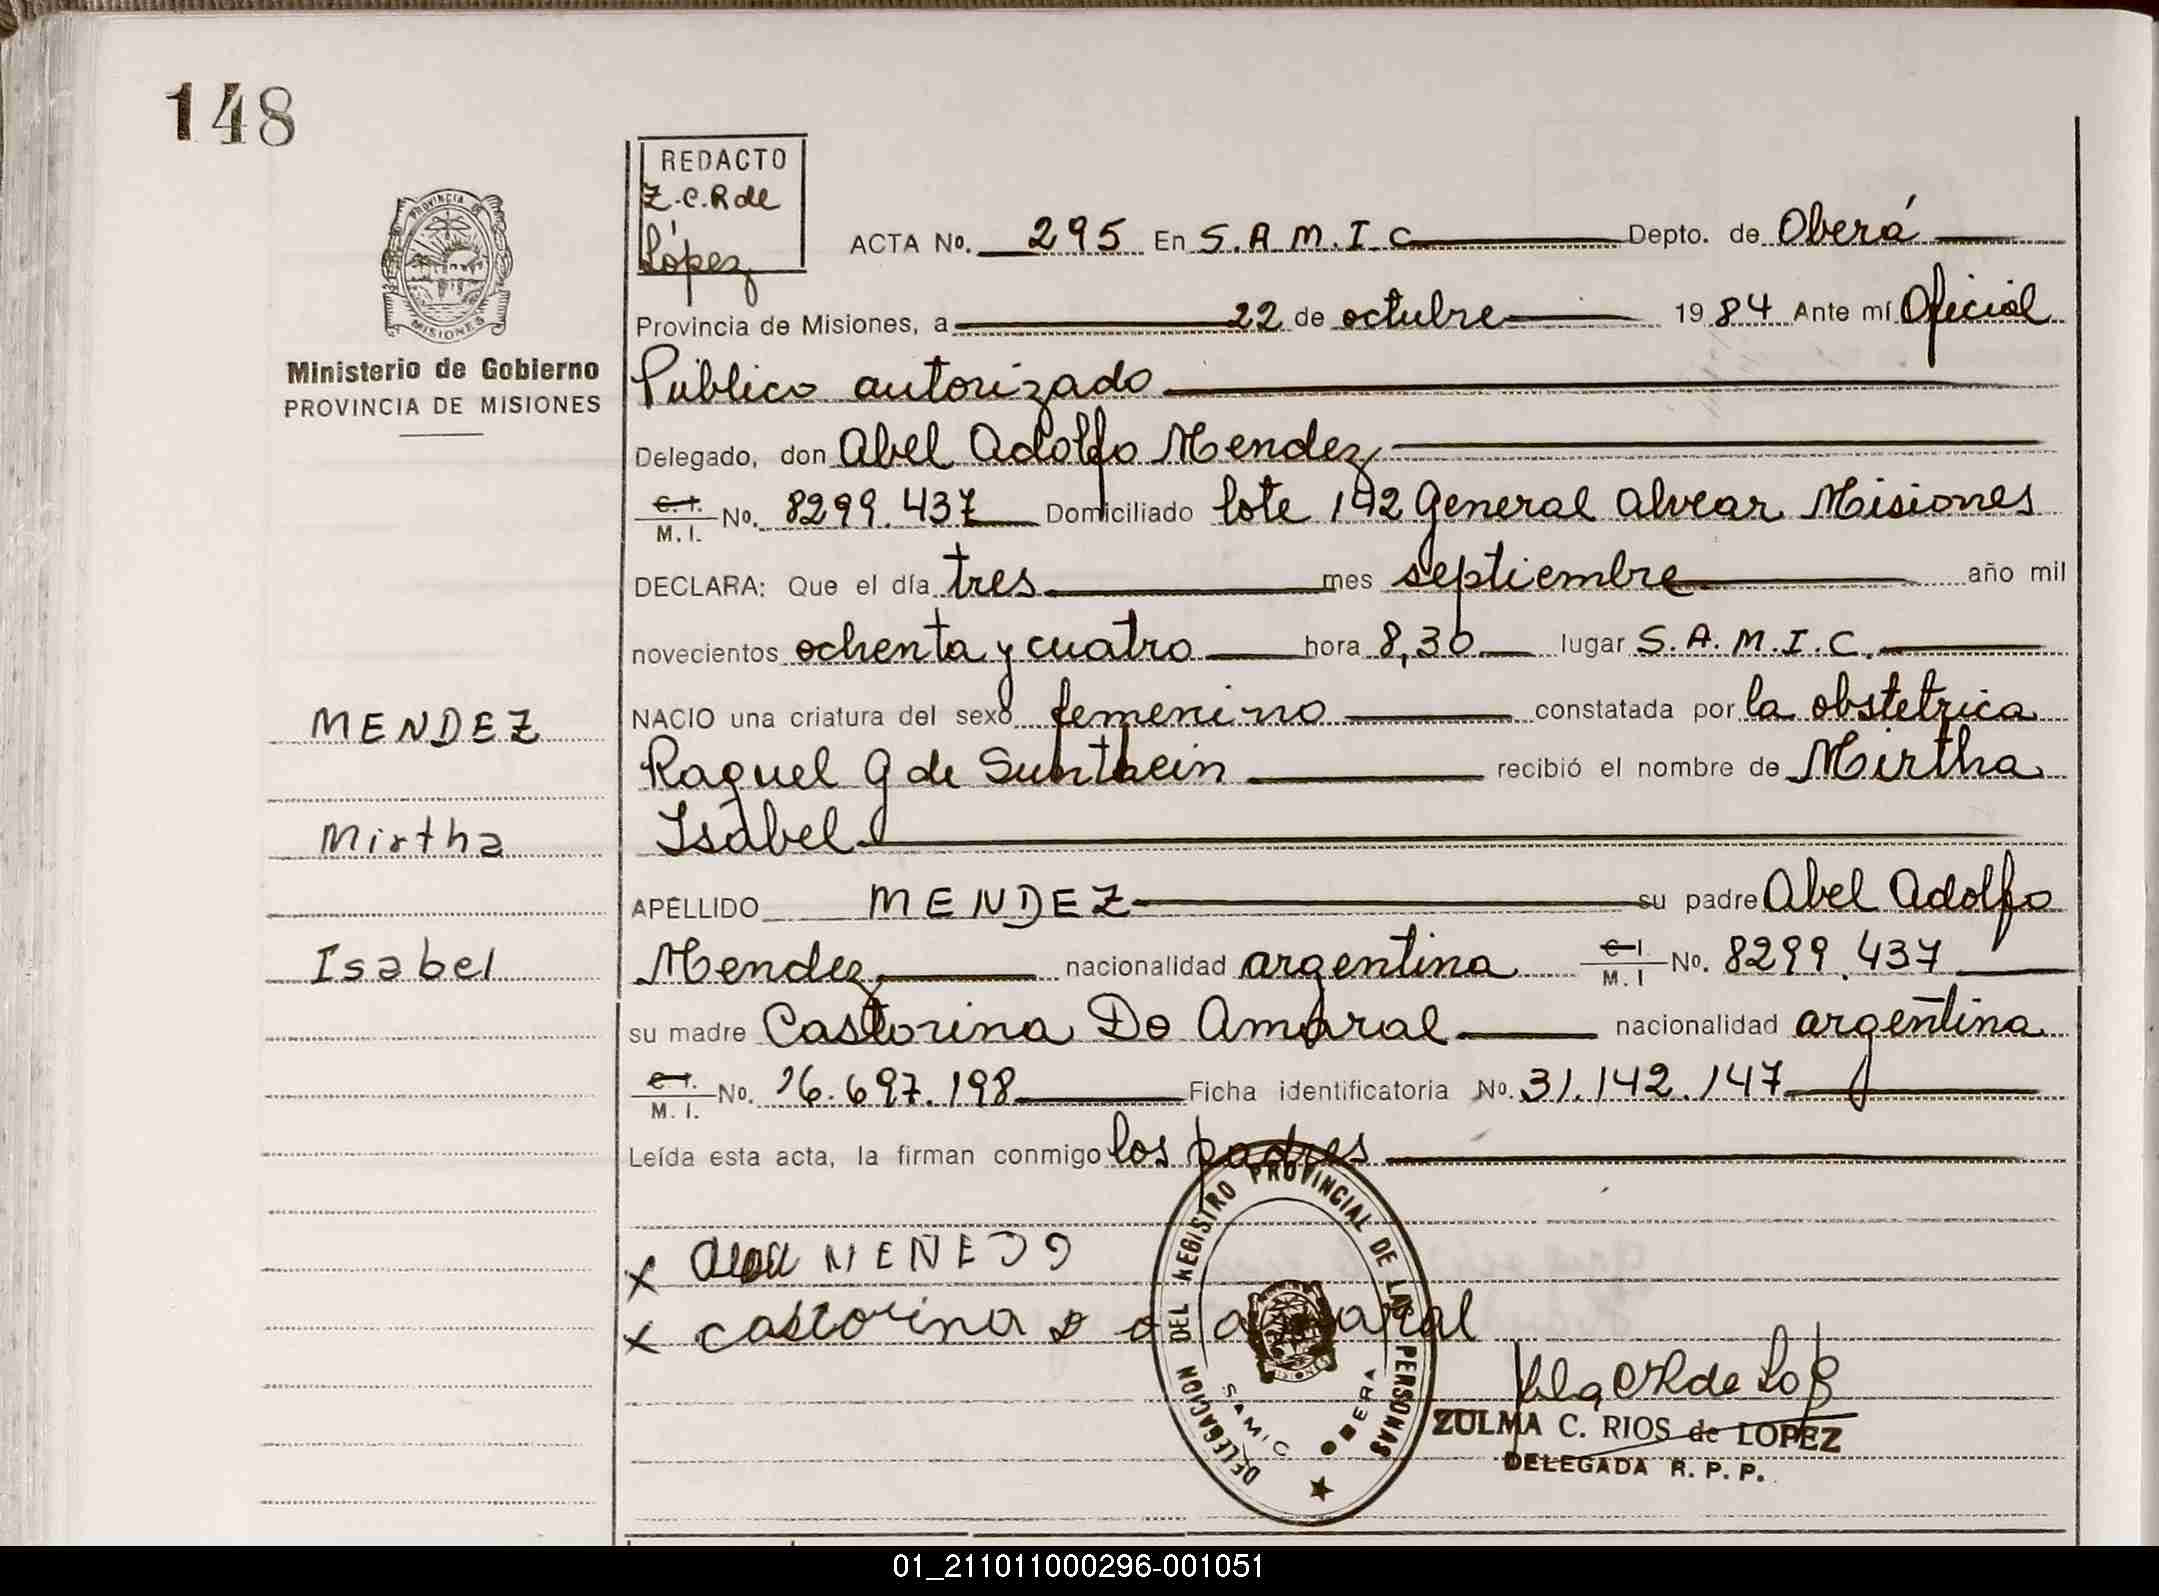 148
REDACTO
Z.C.R de
López
ACTA No. 295 En S.A.M.I.C Depto. de Oberá
Provincia de Misiones, a 22 de octubre 1984 Ante mí Oficial
Público autorizado
Delegado, don Abel Adolfo Mendez
C.I. M.I. No. 8299.437 Domiciliado lote 142 General Alvear Misiones
DECLARA: Que el día tres mes septiembre año mil
novecientos ochenta y cuatro hora 8,30 lugar S.A.M.I.C.
NACIO una criatura del sexo femenino constatada por la obstetrica
Raquel G de recibió el nombre de Mirtha
Isabel
APELLIDO MENDEZ su padre Abel Adolfo
Mendez nacionalidad argentina C.I. M.I No. 8299.437
su madre Castorina Do Amaral nacionalidad argentina
C.I. M.I. No. 16.697.198 Ficha identificatoria No. 31.142.147
Leída esta acta, la firman conmigo los padres
PROVINCIA DE
MISIONES
Ministerio de Gobierno
PROVINCIA DE MISIONES
MENDEZ
Mirtha
Isabel
castorina do amaral
DELEGACION DEL REGISTRO PROVINCIAL DE LAS PERSONAS
SAMIC OBERA
ZULMA C. RIOS de LOPEZ
DELEGADA R.P.P.
01_211011000296-001051